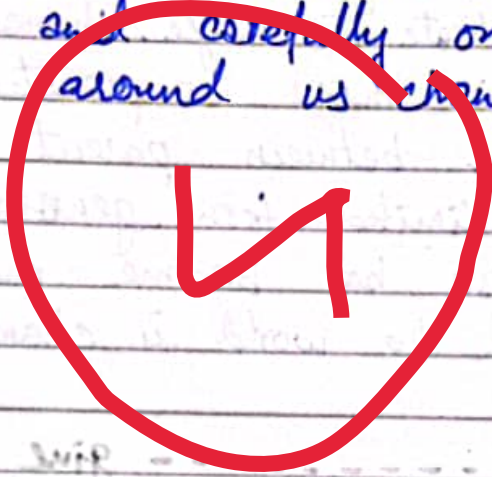 and carefully on
around us chan
И